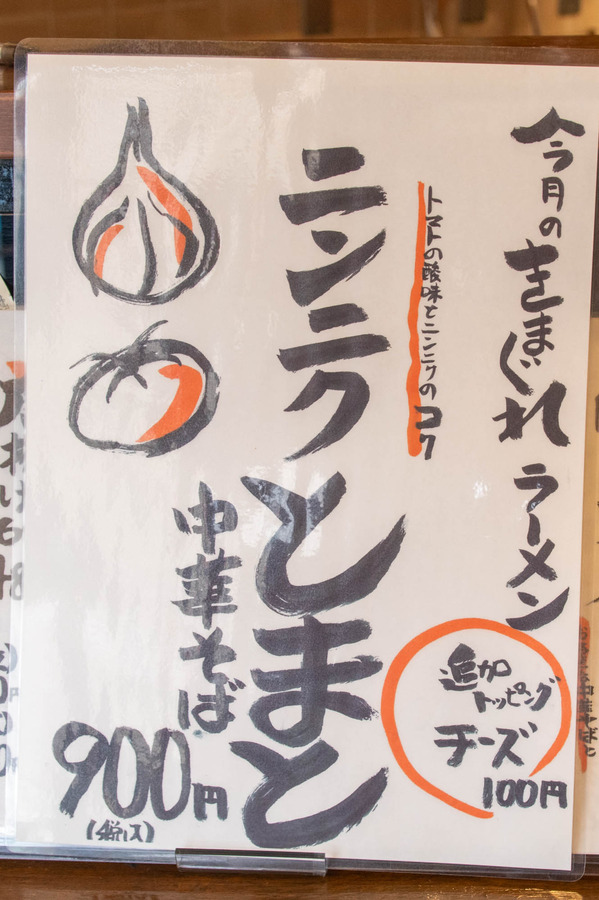 今月のきまぐれラーメン
トマトの酸味とニンニクのコク
ニンニクとまと
中華そば
900円
(税込)
追加
トッピング
チーズ
100円